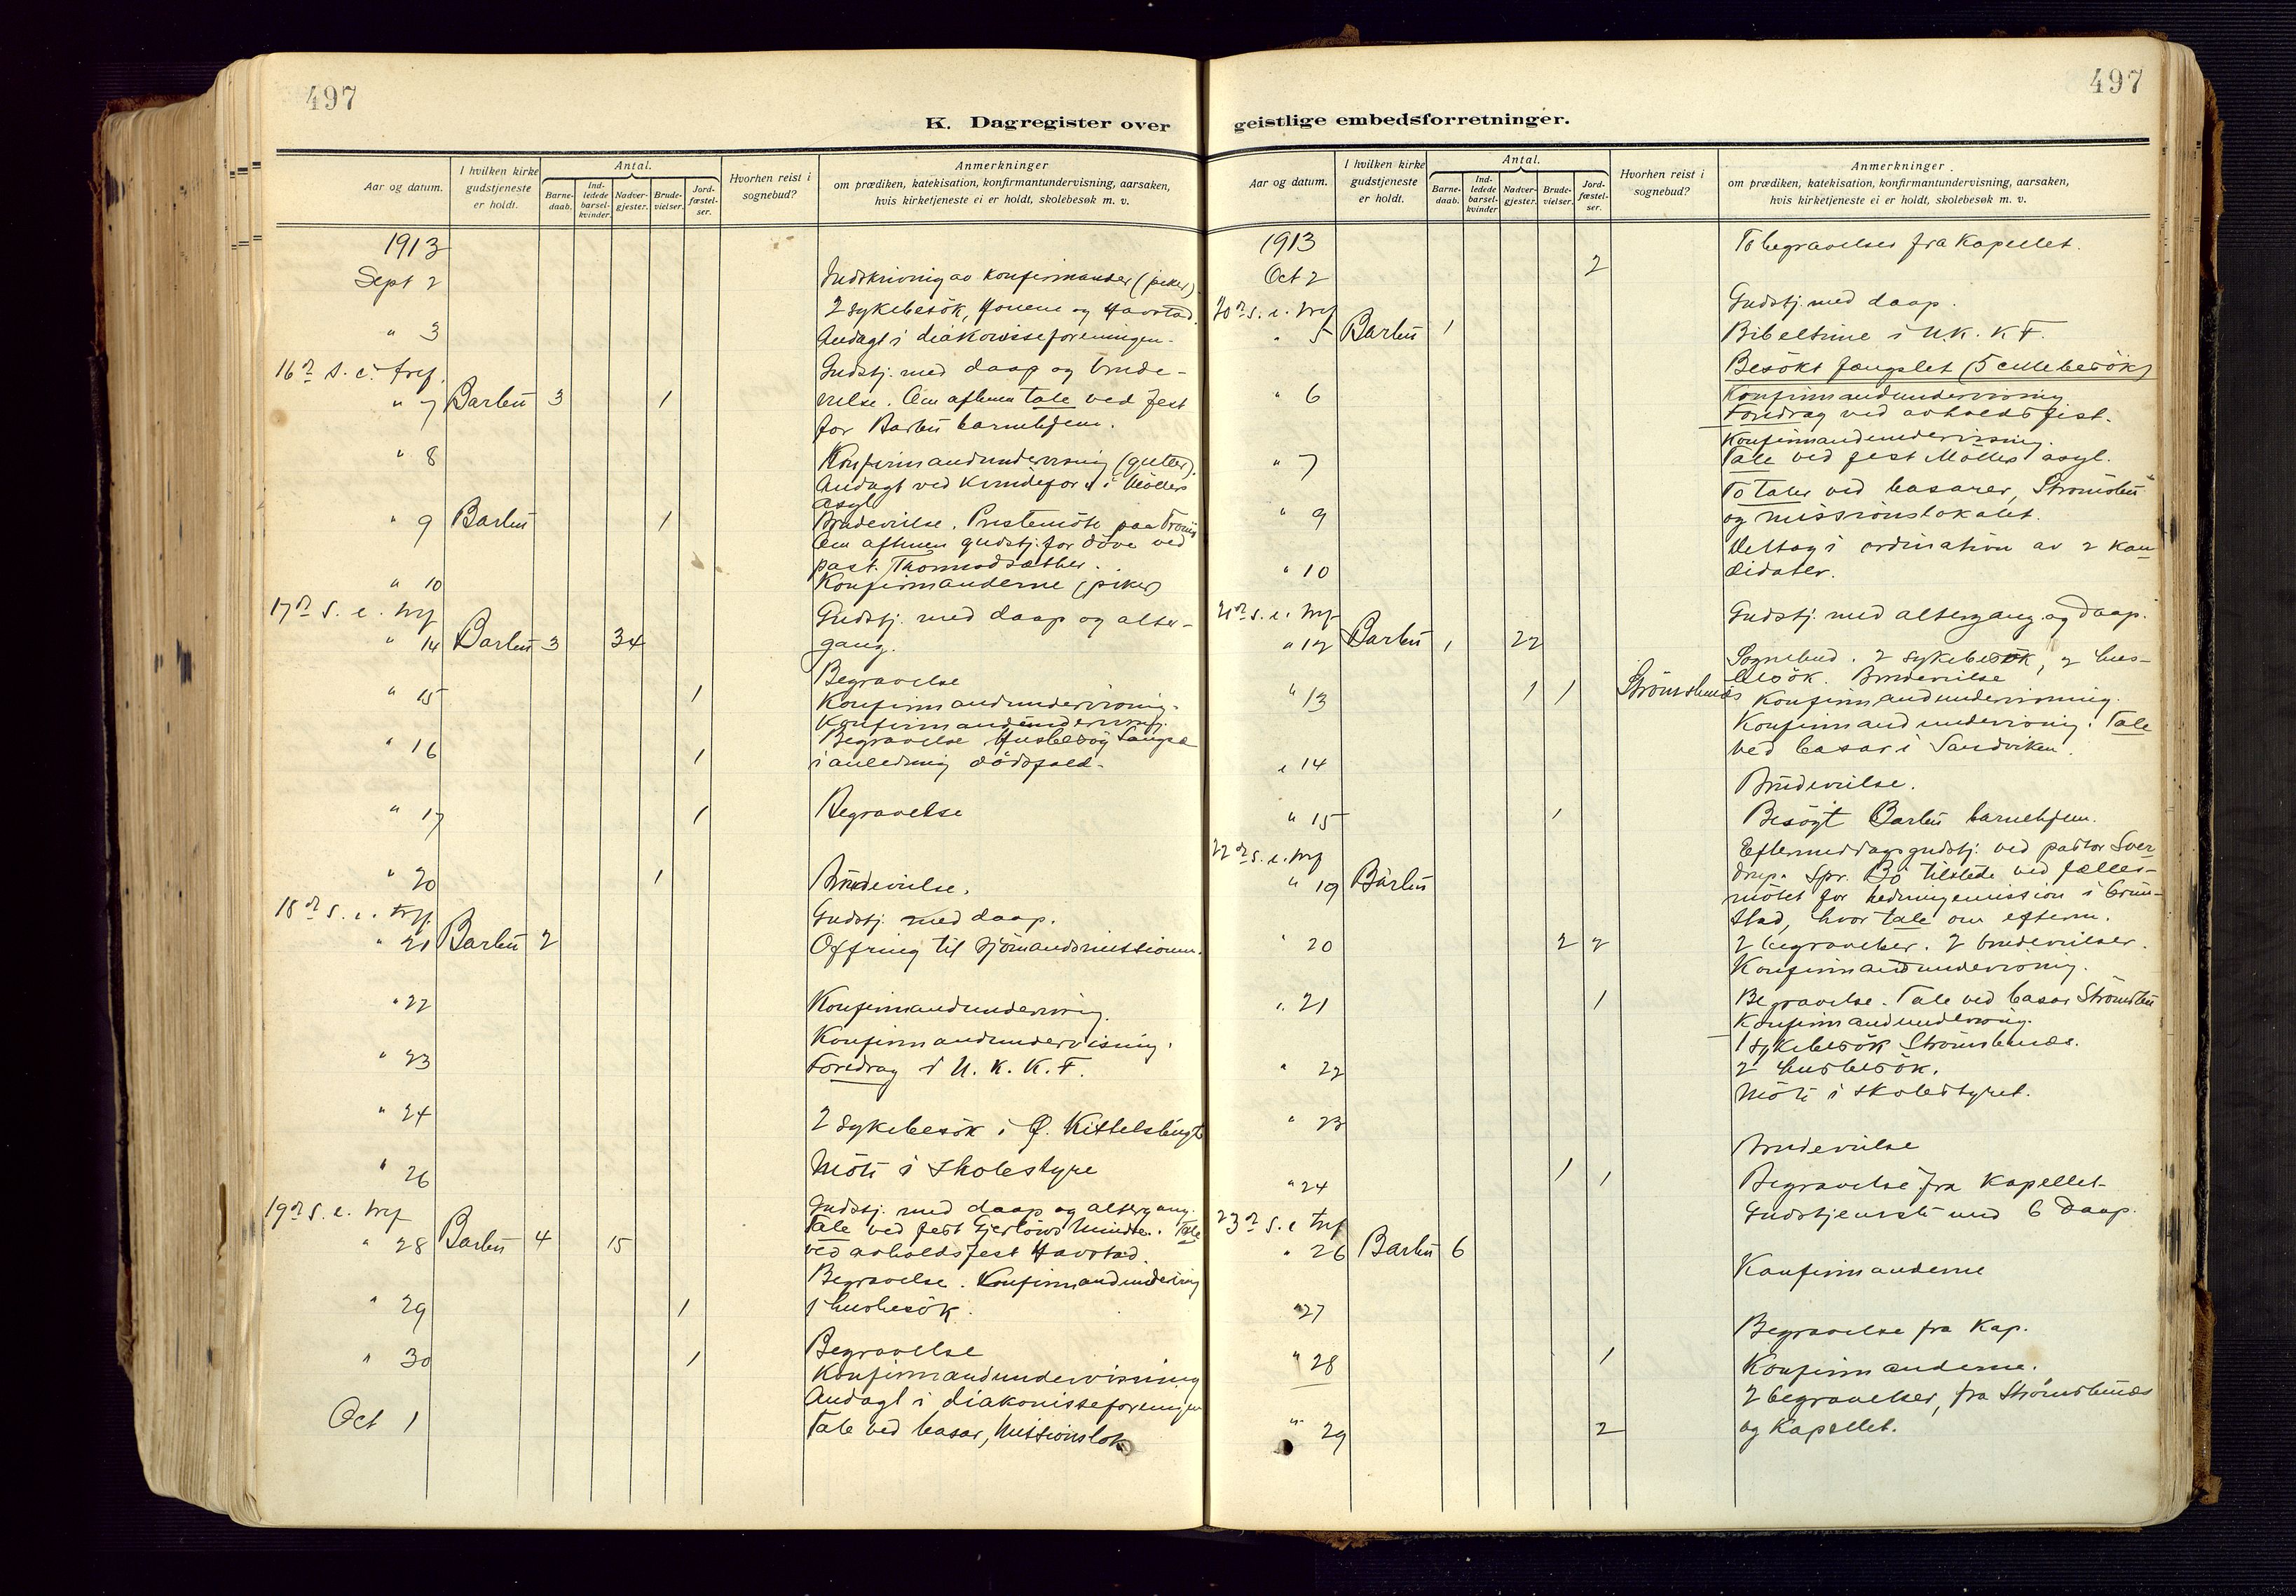 497
K. Dagregister over
Aar og datum.
I hvilken kirke gudstjeneste er holdt.
Antal.
Barne-daab.
Ind-ledede barsel-kvinder.
Nadver-gjester.
Brude-vielser.
Jord-fæstel-ser.
Hvorhen reist i sognebud?
Anmerkninger
om prædiken, katekisation, konfirmantundervisning, aarsaken,
hvis kirketjeneste ei er holdt, skolebesøk m. v.
1913
Sept 2 Indskrivning av konfirmander (piker).
2 sykebesök, og Havstad.
" 3 Andagt i diakonisseforeningen.
16de s. e. tref.
Gudstj. med daap og brude-
" 7 Barbu 3 1 vielse. Om aftenen tale ved fest
for Barbu barnehjem.
" 8 Konfirmandundervisning (gutter).
Andagt ved kvindefor. i Möllers
asyl
" 9 Barbu 1 Brudevielse. Prestemöte paa Tromö
Om aftenen gudstj. for döve ved
past. Thormodsæther.
" 10 Konfirmanderne (piker)
17de s. e. tref
Gudstj. med daap og alter-
" 14 Barbu 3 34 gang.
Begravelse
" 15 1 Konfirmandundervisning.
Konfirmandundervisning.
" 16 1 Begravelse Husbesög
i anledning dödsfald.
" 17 1 Begravelse
" 20 1 Brudevielse.
18de s. e. tref.
Gudstj. med daap.
" 21 Barbu 2 Offring til sjömandsmissionen.
" 22 Konfirmandundervisning.
Konfirmandundervisning.
" 23 Foredrag i U. K. K. F.
" 24 2 sykebesök i Ø. Kittelsbugt
" 26 Möte i skolestyre
19de s. e. tref
Gudstj. med daap og altergang.
Tale ved fest Gjerlöws Minde. Tale
" 28 Barbu 4 15 ved avholdsfest Havstad.
Begravelse. Konfirmandundervisning
" 29 1 1 husbesök.
Begravelse
" 30 1 Konfirmandundervisning
Andagt i diakonisseforeningen
Oct 1 Tale ved basar, Missionslok
497
geistlige embedsforretninger.
Aar og datum.
I hvilken kirke gudstjeneste er holdt.
Antal.
Barne-daab.
Ind-ledede barsel-kvinder
Nadver-gjester.
Brude-vielser.
Jord-fæstel-ser.
Hvorhen reist i sognebud?
Anmerkninger
om prædiken, katekisation, konfirmantundervisning, aarsaken,
hvis kirketjeneste ei er holdt, skolebesøk m. v.
1913
To begravelser fra Kapellet.
Oct 2 2
20de s. e. tref
Gudstj. med daap.
" 5 Barbu 1 Bibeltime i U. K. K F.
Besökt fængslet (5 cellebesök)
" 6 Konfirmandundervisning
Foredrag ved avholdsfest.
Konfirmandundervisning.
" 7 Tale ved fest Möllers asyl.
To taler ved basarer, Strömsbu
" 9 og missionslokalet.
Deltog i ordination av 2 kan
" 10 didater.
21de s. e. tref
Gudstj. med altergang og daap.
" 12 Barbu 1 22
Sognebud. 2 sykebesök, 2 hus-
besök. Brudevielse
" 13 1 1 Strömsbunæs Konfirmandundervisning.
Konfirmandundervisning. Tale
" 14 ved basar i Sandviken.
Brudevielse.
" 15 1 Besögt Barbu barnehjem.
22de s. e. tref
Eftermiddagsgudstj. ved pastor Sver
" 19 Barbu drup. Spr. Bö tilstede ved fælles-
mötet for hedningemission i Grim-
stad, hvor tale om efterm.
" 20 2 2 2 begravelser. 2 brudevielser.
Konfirmandundervisning.
" 21 1 Begravelse. Tale ved basar Strömsbu
Konfirmandundervisning.
1 sykebesök Strömsbunæs.
" 22 2 husbesök.
Möte i skolestyret.
" 23
Brudevielse
" 24 1 1 Begravelse fra Kapellet
23de s. e tref
Gudstjeneste med 6 daap.
" 26 Barbu 6
Konfirmanderne
" 27
Begravelse fra Kap.
" 28 1 Konfirmanderne.
2 begravelser, fra Strömsbunæs
" 29 2 og Kapellet.